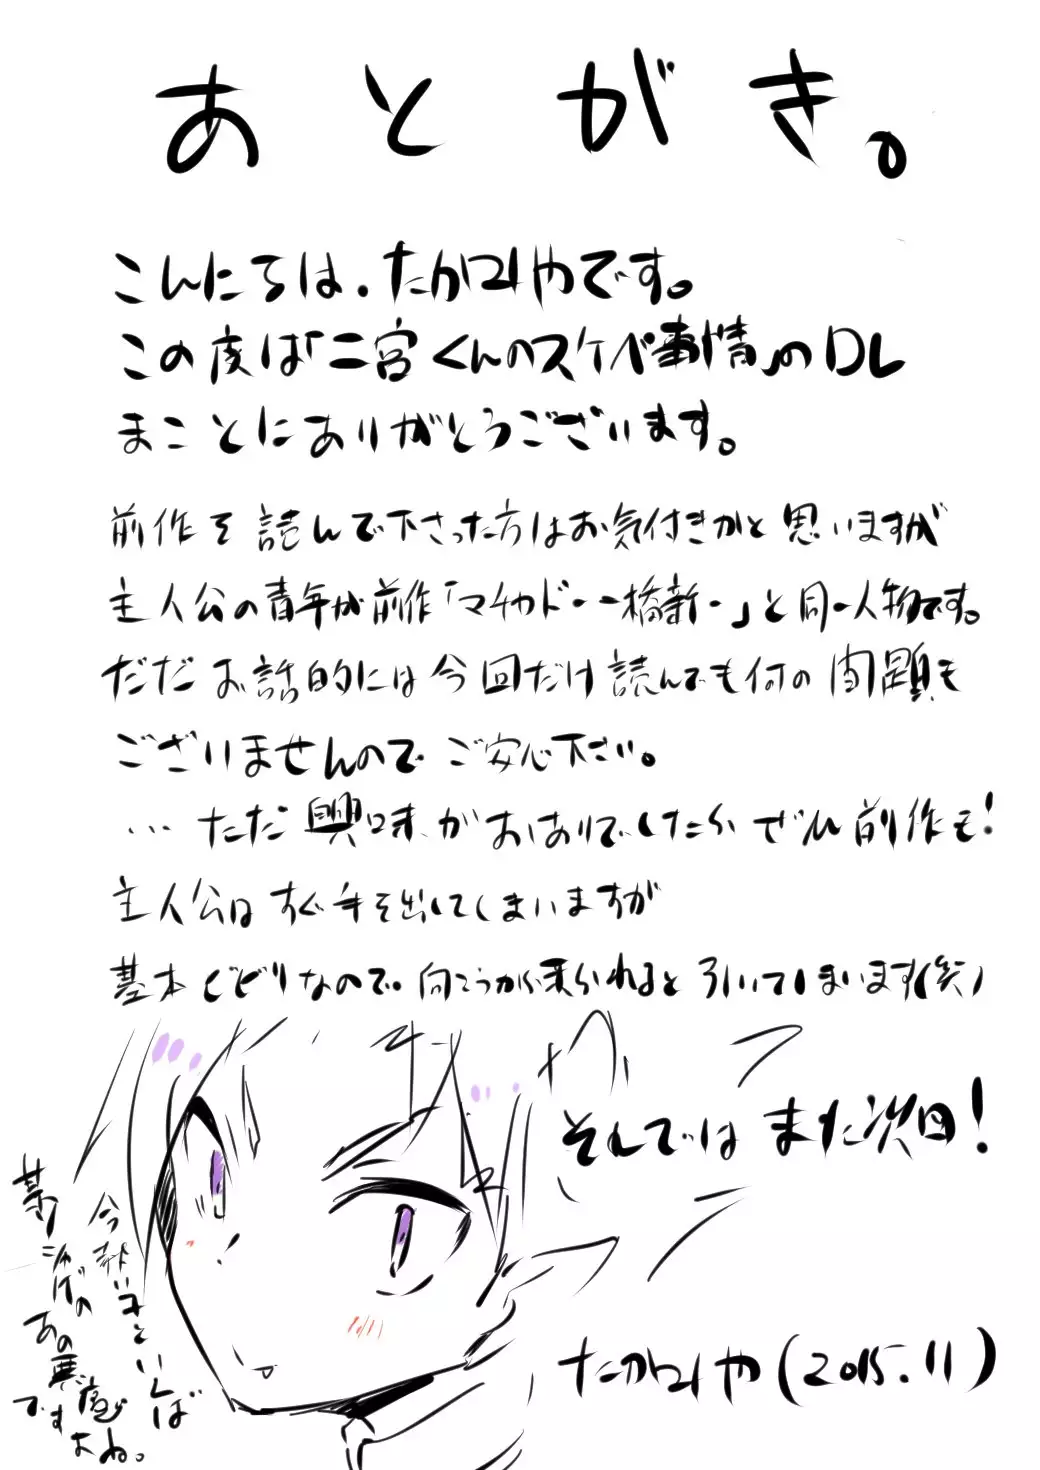 あとがき。
こんにちは、たかロリやです。
この度は「二宮くんのスケベ事情」のDL
まことにありがとうございます。
前作を読んで下さった方はお気付きかと思いますが
主人公の青年が前作「マチカドー一橋新一」と同一人物です。
だだお話的には今回だけ読んでも何の問題も
ございませんのでご安心下さい。
…ただ興味がおありでしたらぜひ前作も!
主人公はすぐ手を出してしまいますが
基本ビビりなので。向こうから来られると引いてしまいます(笑)
それではまた次回!
今新刊といえば
某シャゲのあの悪魔ですよね。
(2015.11)